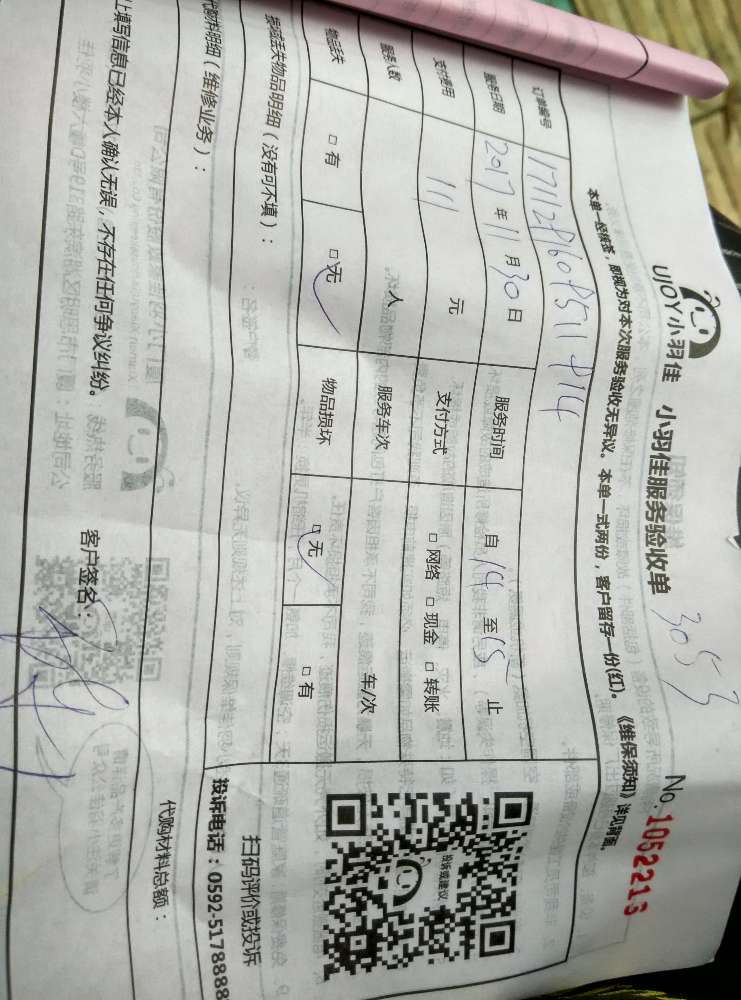 UJOY小羽佳 小羽佳服务验收单 3053 No.1052213
本单一经核签，即视为对本次服务验收无异议。本单一式两份，客户留存一份(红)。《维保须知》详见背面。
订单编号
服务日期 2017年11月30日 服务时间 自14至15止
支付费用 111元 支付方式 □网络 □现金 □转账
服务人数 人 服务车次 车/次
物品丢失 □有 □无 物品损坏 □无 □有
损或丢失物品明细（没有可不填）：
投诉或建议
扫码评价或投诉
投诉电话：0592-5178888
代购材料明细（维修业务）：
代购材料总额：
上填写信息已经本人确认无误，不存在任何争议纠纷。
客户签名：